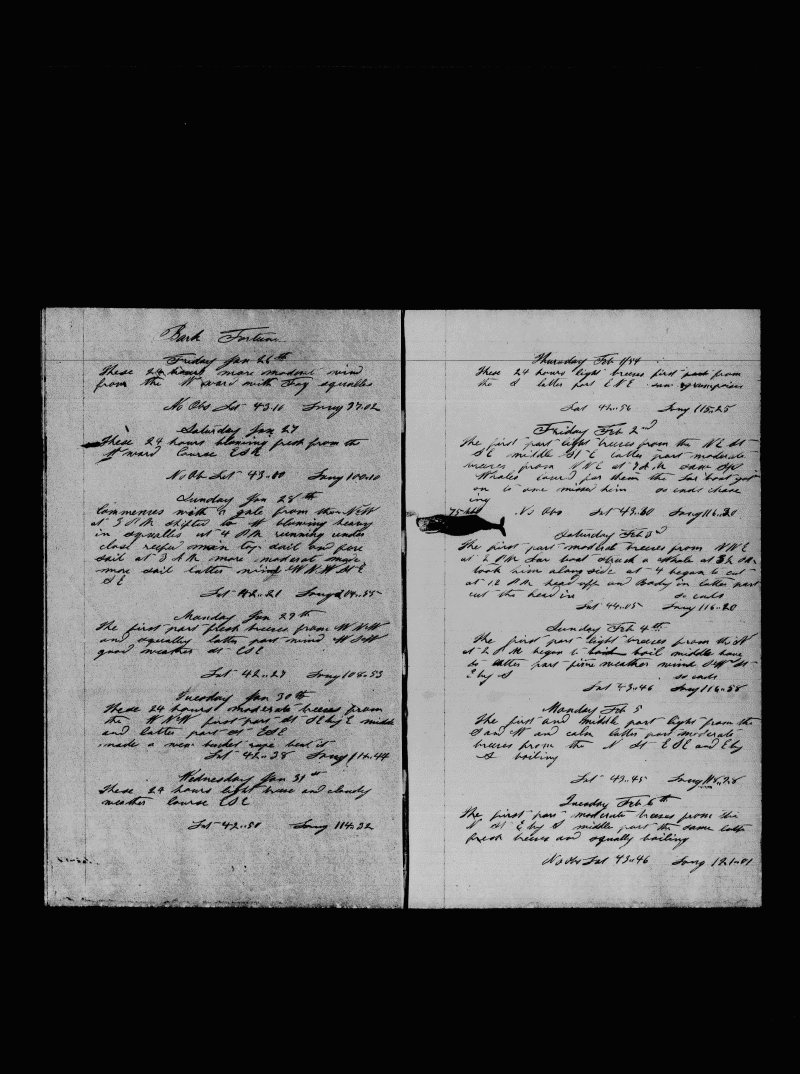 Bark Fortune
Friday Jan 26th
These 24 hours more moderate wind
from the Wward with Fog squalls
No Obs Lat 43.10 Long 97.02
Saturday Jan 27
These 24 hours blowing fresh from the
Wward Course ESE
No Ob Lat 43.00 Long 100.10
Sunday Jan 28th
Commences with a gale from the NW
at 3 P.M. shifted to W blowing heavy
in squalls at 4 P.M. running under
close reefed main top sail and fore
sail at 3 A.M. more moderate made
more sail latter wind WNW St E
SE
Lat 42..21 Long 104..55
Monday Jan 29th
The first part fresh breeses from WNW
and squally latter part wind WSW
good weather St ESE
Lat 42..27 Long 108..53
Tuesday Jan 30th
These 24 hours moderate breeses from
the WNW first part St SE by E middle
and latter part St ESE
made a new bucket rope
Lat 42..38 Long 112.44
Wednesday Jan 31st
These 24 hours light breese and cloudy
weather Course ESE
Lat 42..50 Long 114.32
Thursday Feb 1/54
These 24 hours light breeses first part from
the S latter part ENE saw grampuses
Lat 42..56 Long 115..25
Friday Feb 2nd
The first part light breeses from the NE St
SE middle St E latter part moderate
breeses from NNE at 7 A.M. saw
Whales lowered for them the Lar boat got
on to one missed him so ends chase
ing
75 bbl No Obs Lat 43.60 Long 116..20
Saturday Feb 3rd
The first part modest breeses from NNE
at 2 P.M. Lar boat struck a Whale at
took him along side at 4 began to cut
at 12 P.M. head off and Body in latter part
cut the head in so ends
Lat 44.05 Long 116..20
Sunday Feb 4th
The first part light breeses from the N
at 2 P.M. began to boil middle
do latter part fine weather wind
E by S so ends
Lat 43..46 Long 116..58
Monday Feb 5
The first and middle part light from the
S and W and calm latter part moderate
breeses from the N St ESE and E by
S boiling
Lat 43..45 Long 118..28
Tuesday Feb 6th
The first part moderate breeses from the
N St E by S middle part the same latter
fresh breeses and squally boiling
No Obs Lat 43..46 Long 121..01